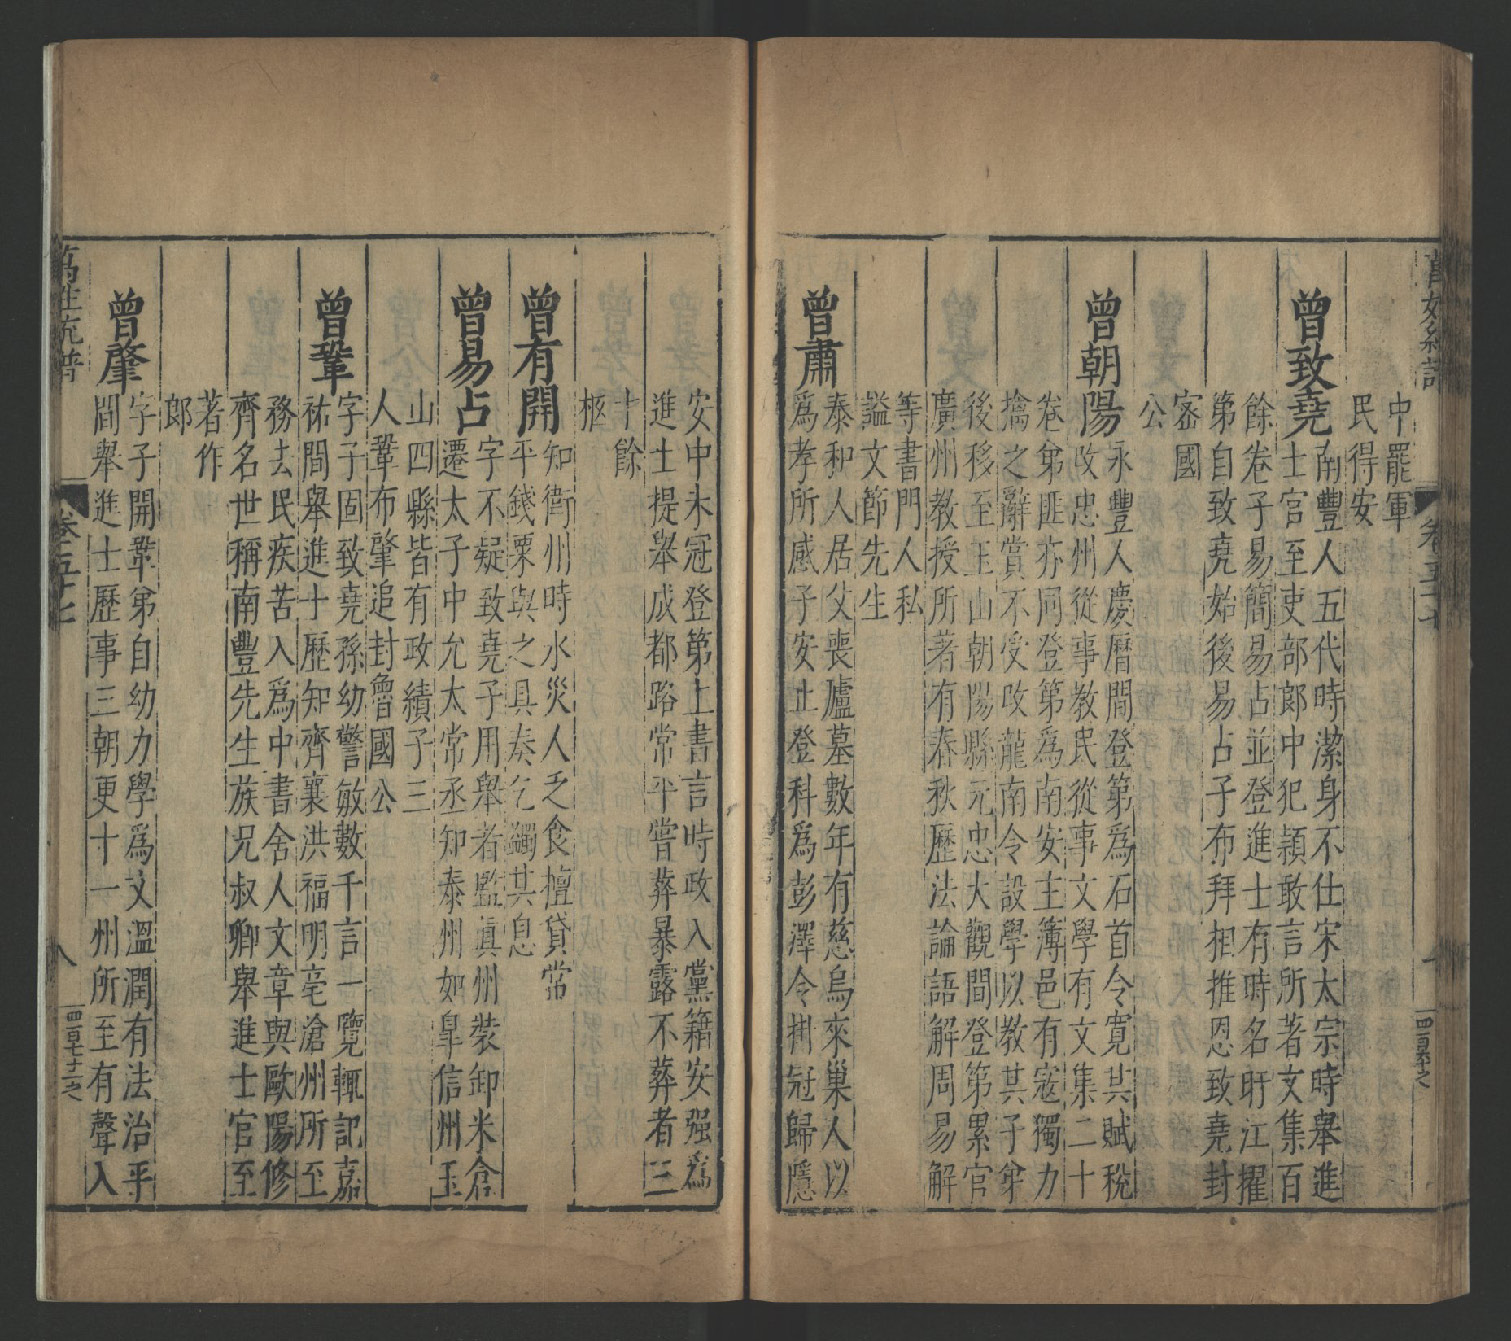 中罷軍
民得安
曾致堯南豐人五代時潔身不仕宋太宗時舉進
士官至吏部郎中犯顏敢言所著文集百
餘卷子易簡易占並登進士有時名旴江擢
第自致堯始後易占子布拜相推恩致堯封
密國
公
曾朝陽永豐人慶曆間登第為石首令寬其賦稅
改忠州從事教民從事文學有文集二十
卷弟匪亦同登第為南安主簿邑有寇獨力
擒之辭賞不受改龍南令設學以教其子弟
後移至至山朝陽縣元忠大觀間登第累官
廣州教授所著有春秋歷法論語解周易解
等書門人私
謚文節先生
曾肅泰和人居父喪廬墓數年有慈烏來巢人以
為孝所感子安止登科為彭澤令掛冠歸隱
安中未冠登第上書言時政入黨籍安强為
進士提舉成都路常平嘗葬暴露不葬者三
十餘
柩
曾有開知衛州時水災人乏食擅貸常
平錢粟與之具奏乞蠲其息
曾易占字不疑致堯子用舉者監眞州裝卸米倉
遷太子中允太常丞知泰州如臯信州玉
山四縣皆有政績子三
人鞏布肇追封魯國公
曾鞏字子固致堯孫幼警敏數千言一覽輒記嘉
祐間舉進士歷知齊襄洪福明亳滄州所至
務去民疾苦入為中書舍人文章與歐陽修
齊名世稱南豐先生族兄叔卿舉進士官至
著作
郎
曾肇字子開鞏弟自幼力學為文溫潤有法治平
間舉進士歷事三朝更十一州所至有聲入
萬姓統譜 卷五十七 八